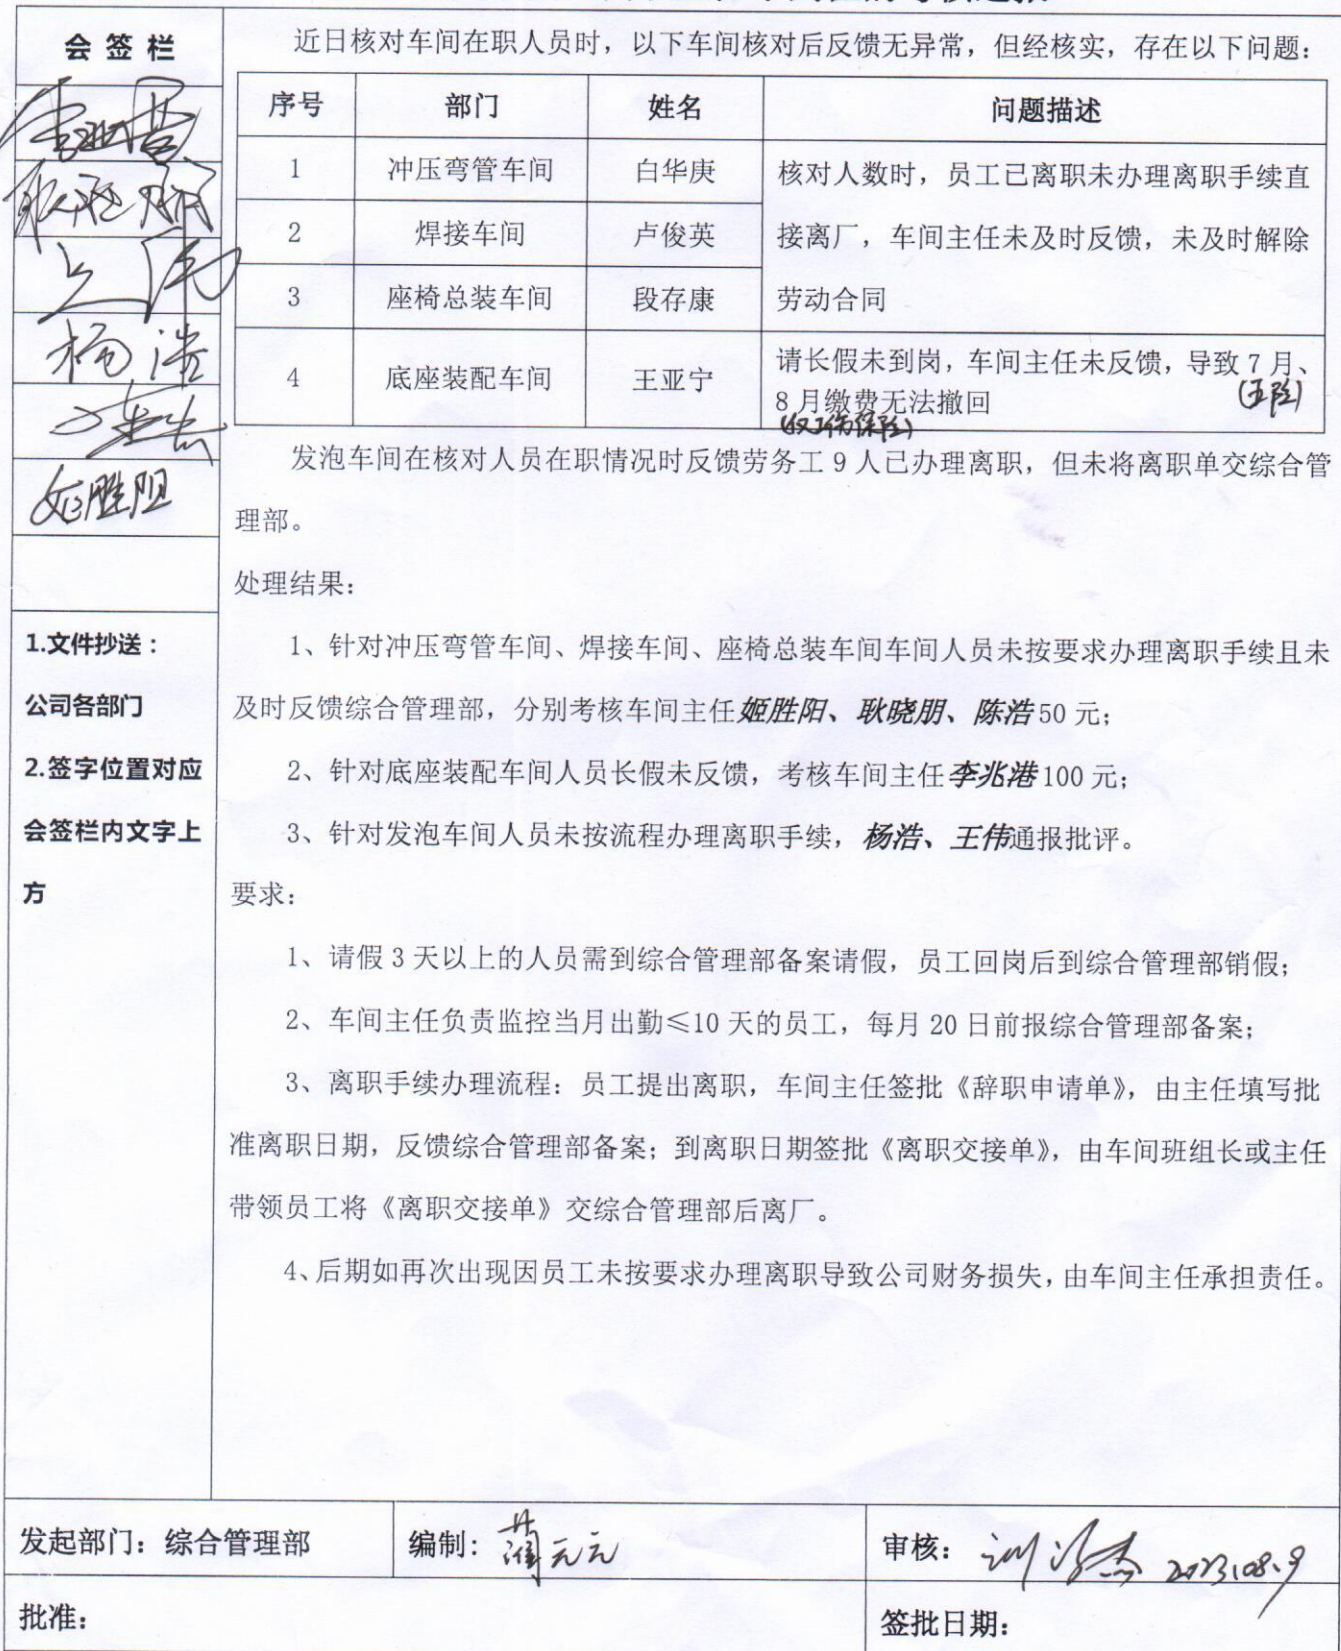 会 签 栏
近日核对车间在职人员时，以下车间核对后反馈无异常，但经核实，存在以下问题：
序号 部门 姓名 问题描述
1 冲压弯管车间 白华庚
2 焊接车间 卢俊英
3 座椅总装车间 段存康
核对人数时，员工已离职未办理离职手续直
接离厂，车间主任未及时反馈，未及时解除
劳动合同
4 底座装配车间 王亚宁
请长假未到岗，车间主任未反馈，导致 7 月、
8 月缴费无法撤回
(五险)
(仅工伤保险)
杨浩
姬胜阳
发泡车间在核对人员在职情况时反馈劳务工 9 人已办理离职，但未将离职单交综合管
理部。
处理结果：
1、针对冲压弯管车间、焊接车间、座椅总装车间车间人员未按要求办理离职手续且未
及时反馈综合管理部，分别考核车间主任姬胜阳、耿晓朋、陈浩 50 元；
2、针对底座装配车间人员长假未反馈，考核车间主任李兆港 100 元；
3、针对发泡车间人员未按流程办理离职手续，杨浩、王伟通报批评。
要求：
1、请假 3 天以上的人员需到综合管理部备案请假，员工回岗后到综合管理部销假；
2、车间主任负责监控当月出勤≤10 天的员工，每月 20 日前报综合管理部备案；
3、离职手续办理流程：员工提出离职，车间主任签批《辞职申请单》，由主任填写批
准离职日期，反馈综合管理部备案；到离职日期签批《离职交接单》，由车间班组长或主任
带领员工将《离职交接单》交综合管理部后离厂。
4、后期如再次出现因员工未按要求办理离职导致公司财务损失，由车间主任承担责任。
1.文件抄送：
公司各部门
2.签字位置对应
会签栏内文字上
方
发起部门：综合管理部 编制： 审核： 2023.08.9
批准： 签批日期：